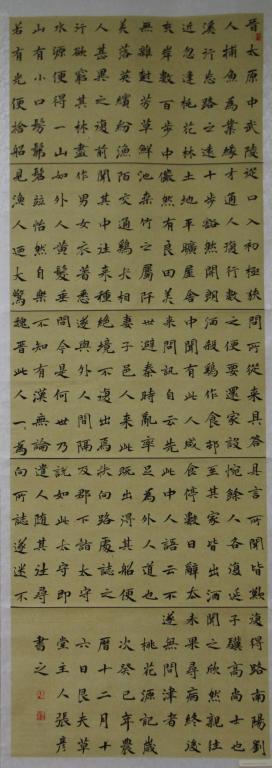 晉太原中武陵
人捕魚為業緣
溪行忘路之遠
近忽逢桃花林
夾岸數百步中
無雜樹芳草鮮
美落英繽紛漁
人甚異之復前
行欲窮其林盡
水源便得一山
山有小口髣髴
若有光便捨船
從口入初極狹
才通人復行數
十步豁然開朗
土地平曠屋舍
儼然有良田美
池桑竹之屬阡
陌交通雞犬相
聞其中往來種
作男女衣著悉
如外人黃髮垂
髫並怡然自樂
見漁人迺大驚
問所從來具答
之便要還家設
酒殺雞作食邨
中聞有此人咸
來問訊自云先
世避秦時亂率
妻子邑人來此
絕境不復出焉
遂與外人間隔
問今是何世乃
不知有漢無論
魏晉此人一為
具言所聞皆歎
惋餘人各復延
至其家皆出酒
食停數日辭去
此中人語云不
足為外人道也
既出得其船便
扶向路處誌之
及郡下詣太守
說如此太守即
遣人隨其往尋
向所誌遂迷不
復得路南陽劉
子驥高尚士也
聞之欣然親往
未果尋病終後
遂無問津者
桃花源記歲
次癸巳年農
曆十二月十
六日艮夫草
堂主人張彥
書之